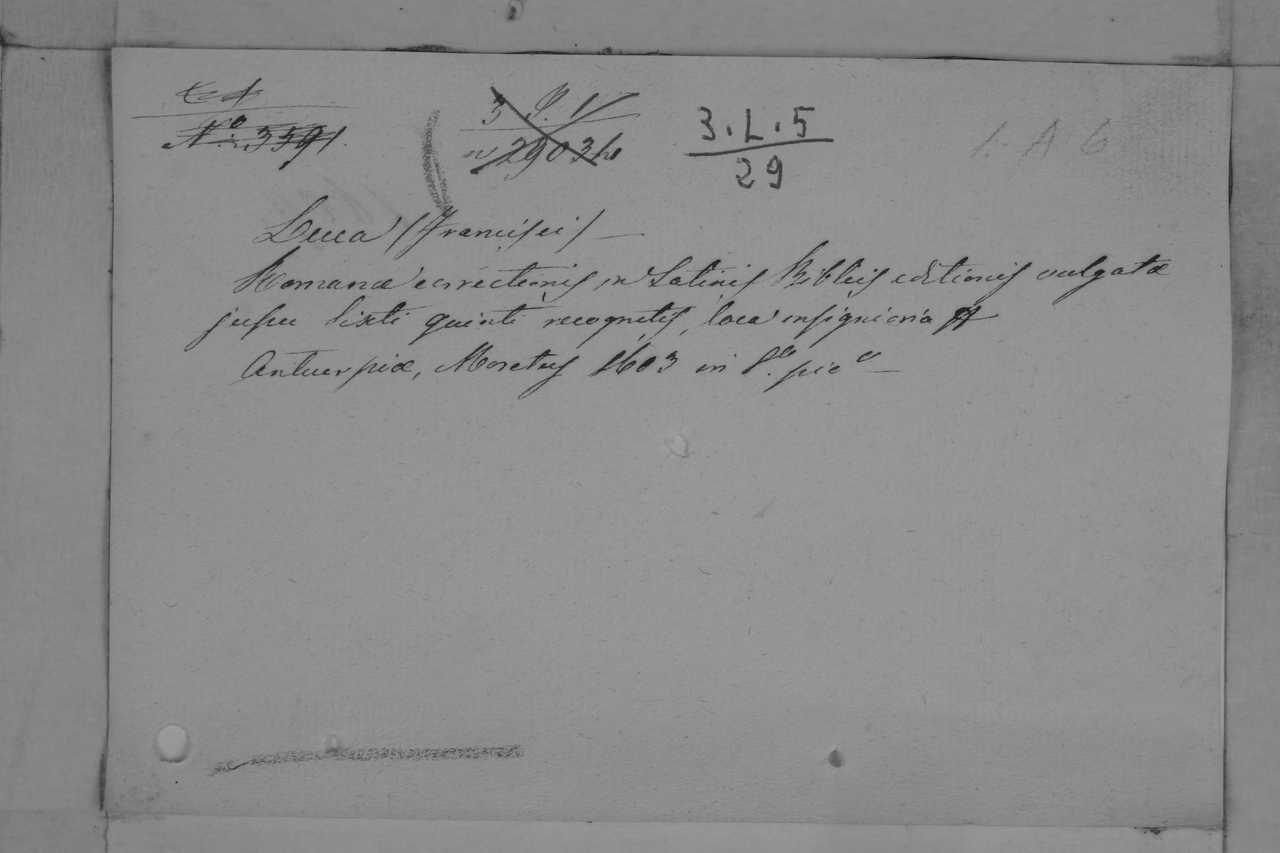 N.º 3591.
3 P. V
nº 2903 bis
3.L.5
29
1. A 6
Luca (Francisci) —
Romanæ correctionis in Latinis Bibliis editionis vulgatæ
jussu Sixti quinti recognitis, loca insigniora
Antuerpiæ, Moretus 1603 in 8.º picº —